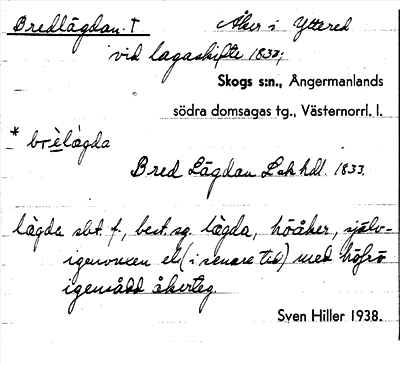 Bredlägdan. †
Åker i Yttered
vid lagaskifte 1833;
Skogs s:n., Ångermanlands
södra domsagas tg., Västernorrl. l.
* brèlàgda
Bred Lägdan Lsk hdl. 1833.
lägda sbt. f., best. sg. lägda, höåker, själv-
igenvuxen el. (i senare tid) med höfrö
igensådd åkerteg.
Sven Hiller 1938.